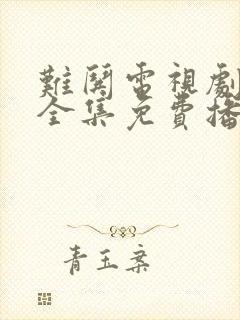 難鬨電視劇
全集免費播
青玉案